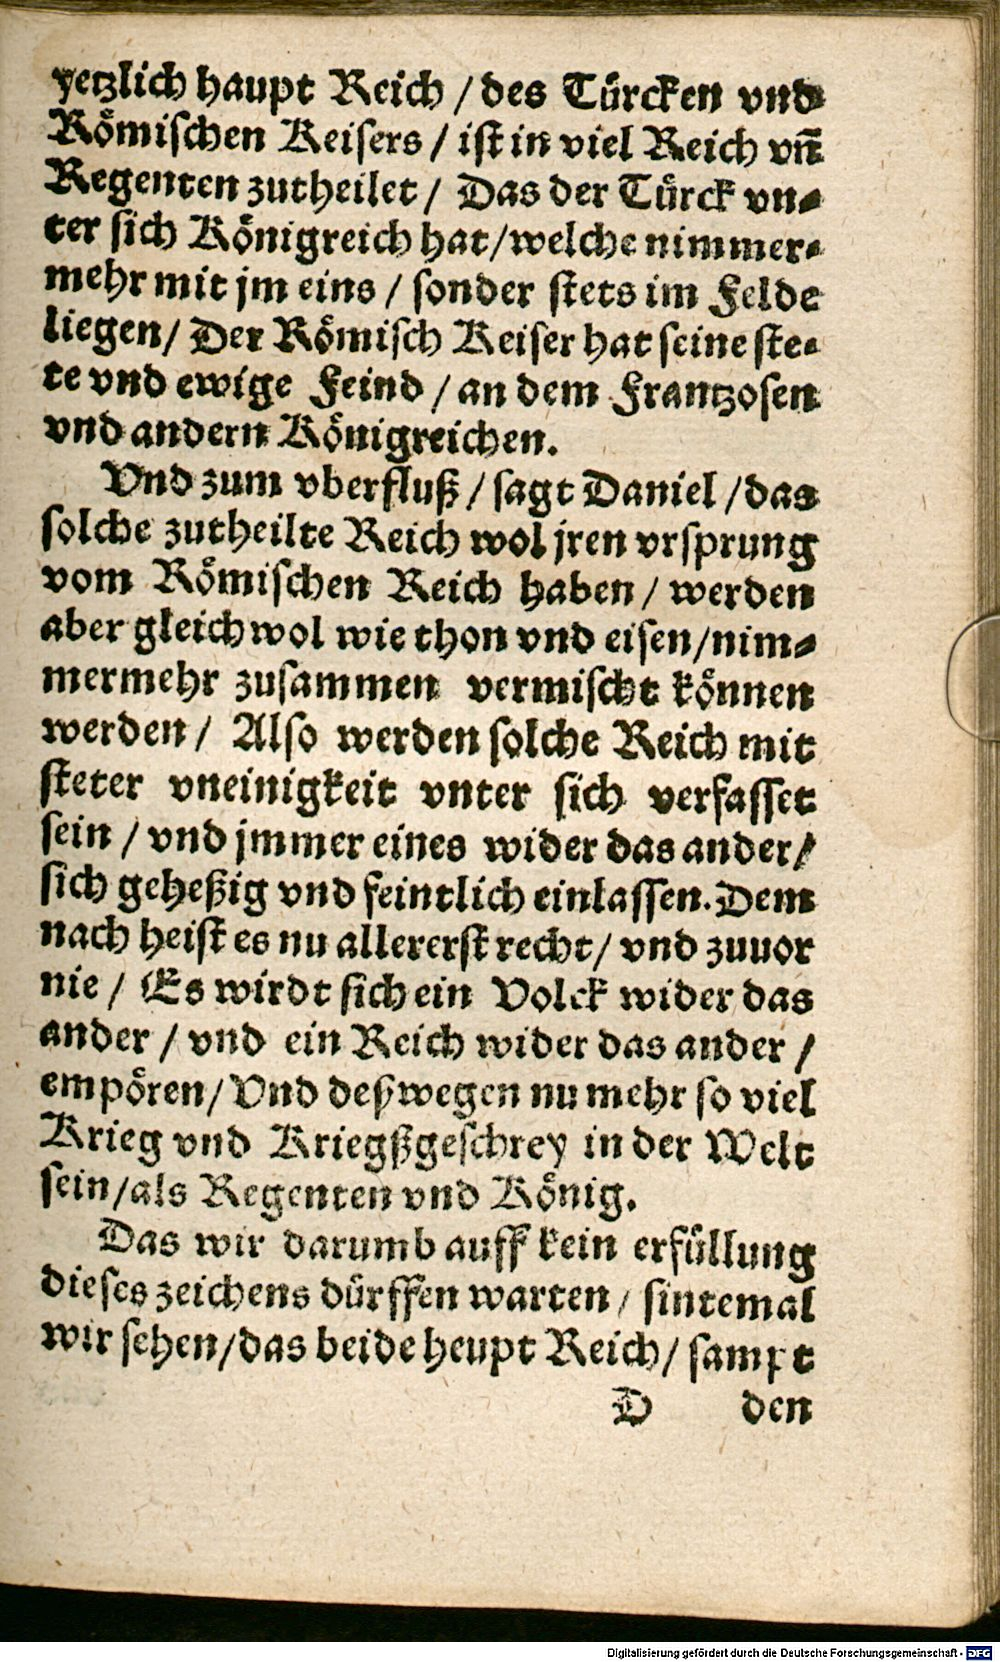 yetzlich haupt Reich / des Türcken vnd
Römischen Keisers / ist in viel Reich vñ
Regenten zutheilet / Das der Türck vn⸗
ter sich Königreich hat / welche nimmer⸗
mehr mit jm eins / sonder stets im Felde
liegen / Der Römisch Keiser hat seine ste⸗
te vnd ewige Feind / an dem Frantzosen
vnd andern Königreichen.
Vnd zum vberfluß / sagt Daniel / das
solche zutheilte Reich wol jren vrsprung
vom Römischen Reich haben / werden
aber gleichwol wie thon vnd eisen / nim⸗
mermehr zusammen vermischt können
werden / Also werden solche Reich mit
steter vneinigkeit vnter sich verfasset
sein / vnd jmmer eines wider das ander /
sich geheßig vnd feintlich einlassen. Dem
nach heist es nu allererst recht / vnd zuuor
nie / Es wirdt sich ein Volck wider das
ander / vnd ein Reich wider das ander /
empören / Vnd deßwegen nu mehr so viel
Krieg vnd Kriegßgeschrey in der Welt
sein / als Regenten vnd König.
Das wir darumb auff kein erfüllung
dieses zeichens dürffen warten / sintemal
wir sehen / das beide heupt Reich / sampt
D den
Digitalisierung gefördert durch die Deutsche Forschungsgemeinschaft - DFG